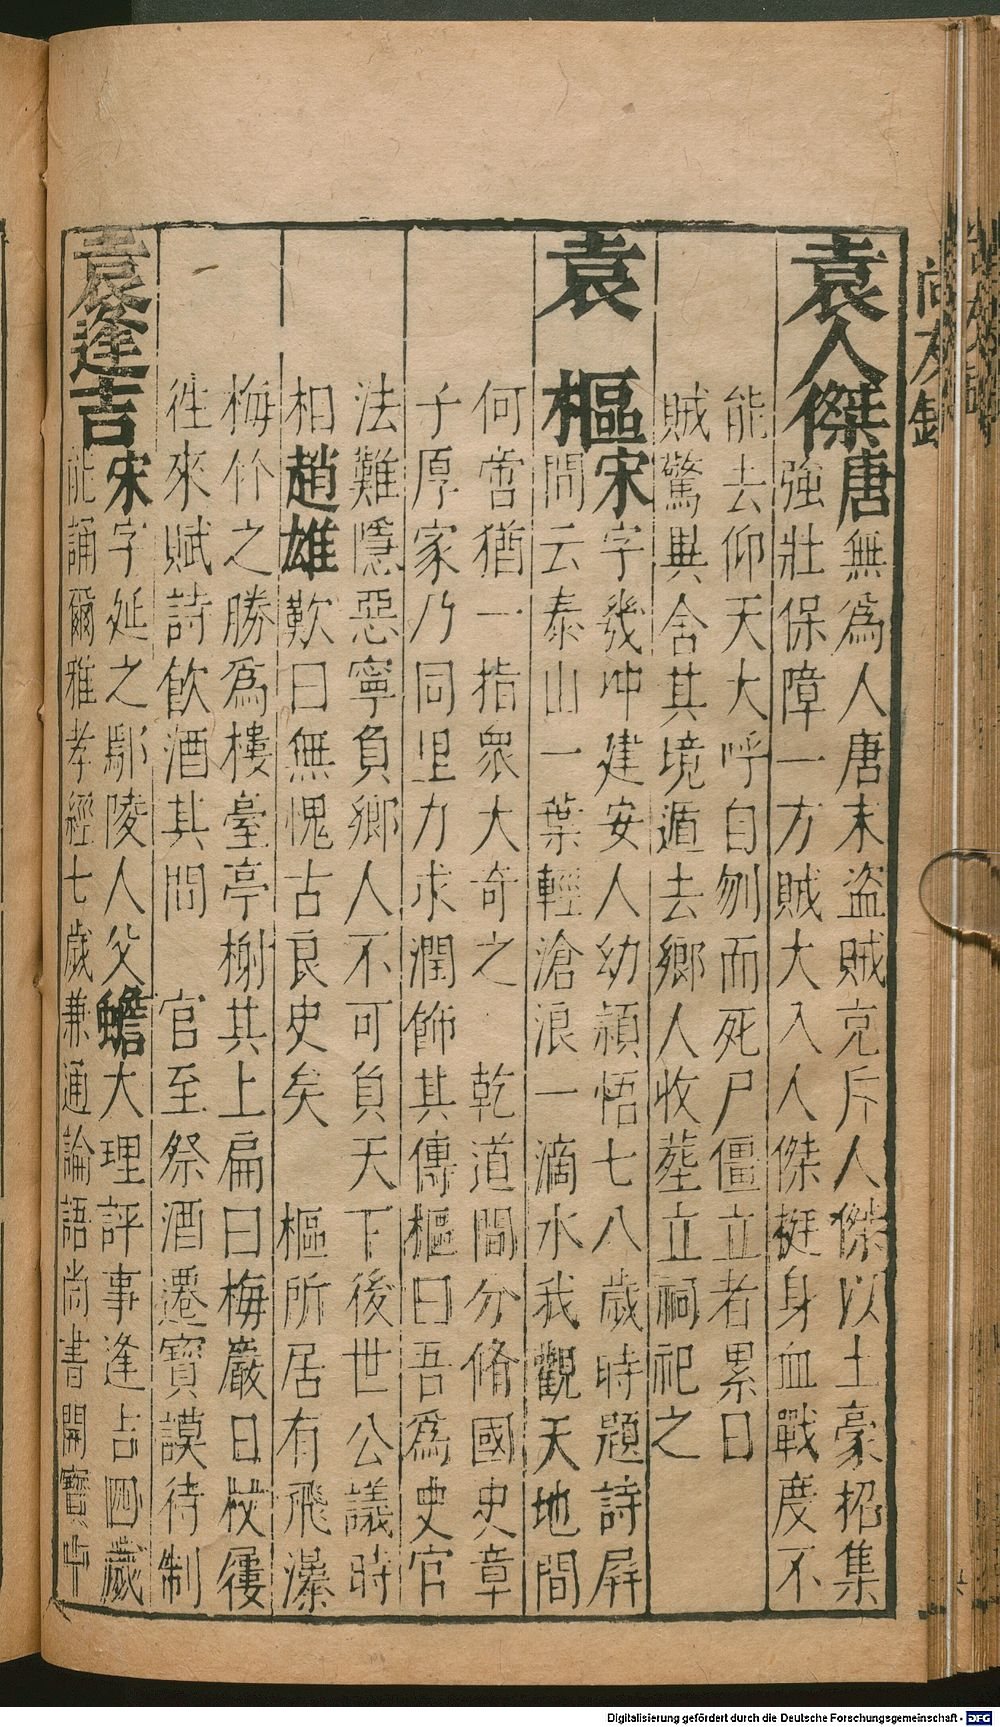 尚友錄
袁人傑唐無爲人唐末盜賊充斥人傑以土豪招集
強壯保障一方賊大入人傑挺身血戰度不
能去仰天大呼自刎而死尸僵立者累日
賊驚異舍其境遁去鄉人收塟立祠祀之
袁樞宋字幾仲建安人幼穎悟七八歲時題詩屏
間云泰山一葉輕滄浪一滴水我觀天地間
何啻猶一指衆大奇之 乾道間分脩國史章
子厚家乃同里力求潤飾其傳樞曰吾爲史官
法難隱惡寧負鄉人不可負天下後世公議時
相趙雄歎曰無愧古良史矣 樞所居有飛瀑
梅竹之勝爲樓臺亭榭其上扁曰梅巖日杖屨
徃來賦詩飲酒其間 官至祭酒遷寶謨待制
袁逢吉宋字延之鄢陵人父蟾大理評事逢吉四歲
能誦爾雅孝經七歲兼通論語尚書開寶中
Digitalisierung gefördert durch die Deutsche Forschungsgemeinschaft - DFG